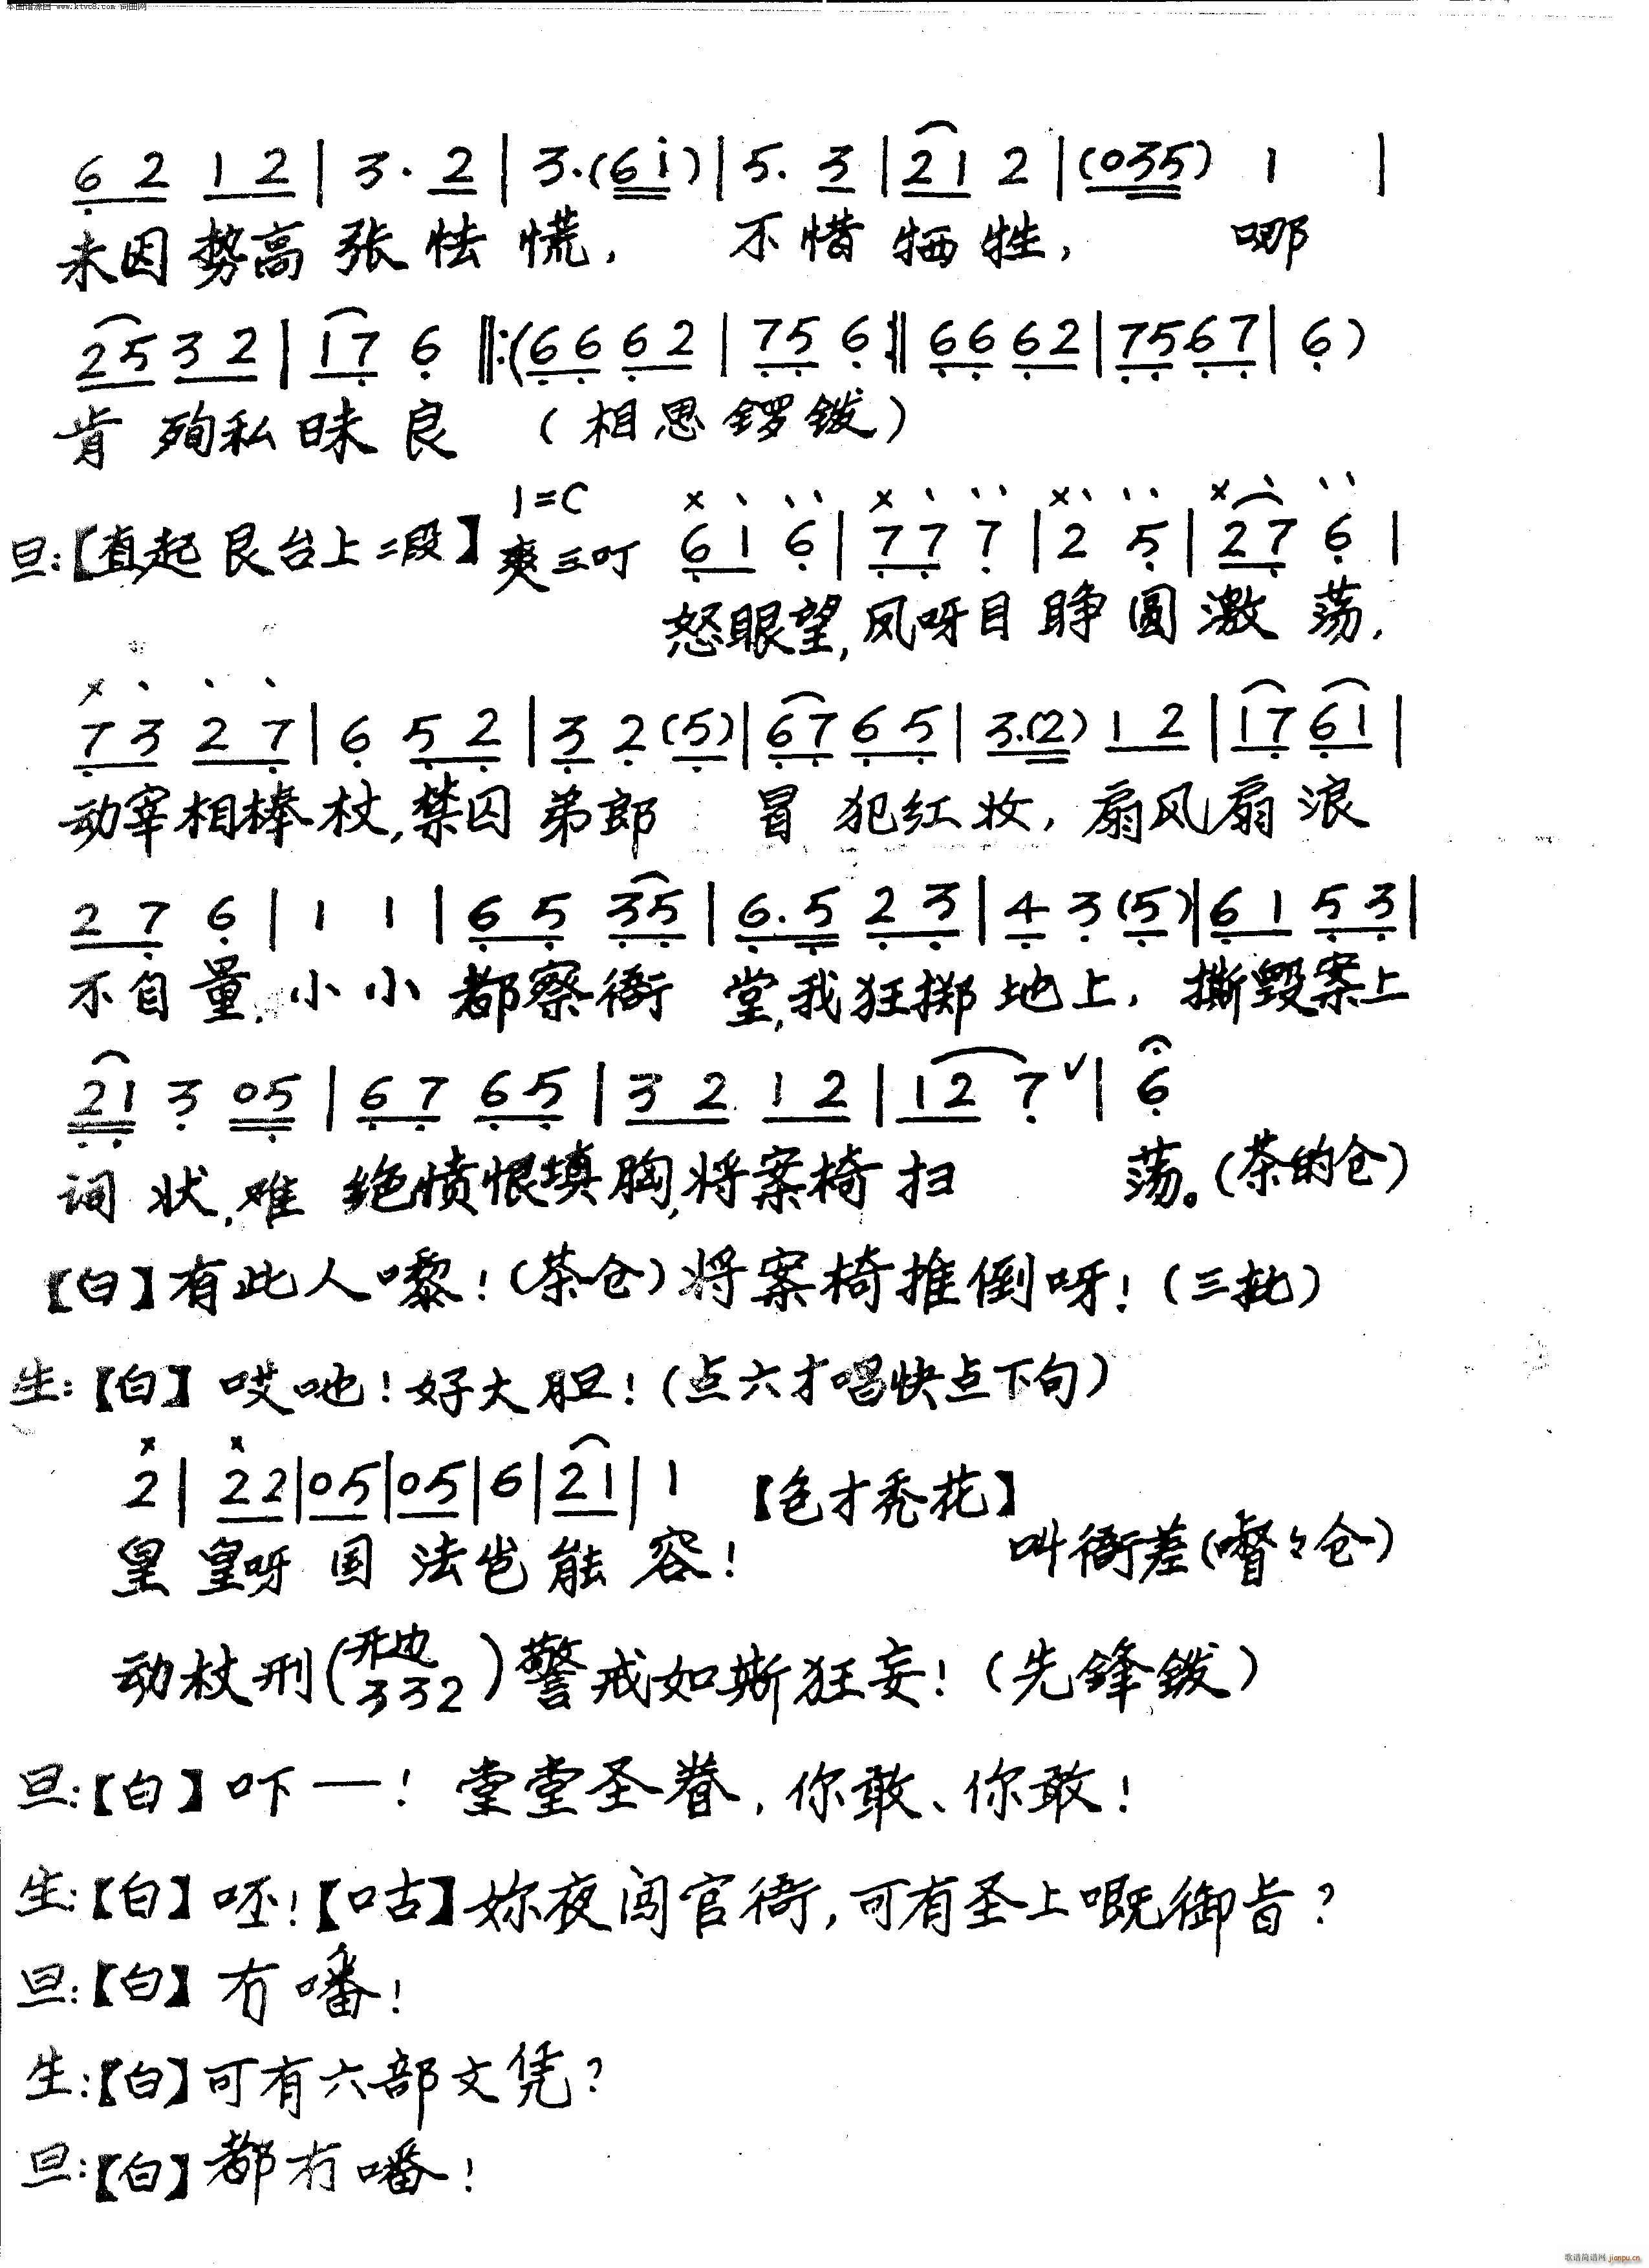 本曲谱源自 www.ktvc8.com 词曲网
6 2 1 2 | 3 · 2 | 3 · (6 i) | 5 · 3 | 2 1 2 | (0 3 5) 1 |
未因势高张怯慌, 不惜牺牲, 哪
2 5 3 2 | 1 7 6 ‖: (6 6 6 2 | 7 5 6 :‖ 6 6 6 2 | 7 5 6 7 | 6 )
肯殉私昧良 (相思锣钹)
旦:【直起艮台上二段】 1=C 爽三叮 6 1 6 | 7 7 7 | 2 5 | 2 7 6 |
怒眼望,凤呀目睁圆激荡,
7 3 2 7 | 6 5 2 | 3 2 (5) | 6 7 6 5 | 3 · (2) 1 2 | 1 7 6 1 |
动宰相棒杖,禁囚弟郎 冒犯红妆, 扇风扇浪
2 7 6 | 1 1 | 6 5 3 5 | 6 · 5 2 3 | 4 3 (5) | 6 1 5 3 |
不自量,小小都察衙堂,我狂掷地上, 撕毁案上
2 1 3 0 5 | 6 7 6 5 | 3 2 1 2 | 1 2 7 ∨ | 6
词状,难绝愤恨填胸,将案椅扫 荡。(茶的仓)
【白】有此人嚟!(茶仓)将案椅推倒呀!(三批)
生:【白】哎吔!好大胆!(点六才唱快点下句)
2 | 2 2 | 0 5 | 0 5 | 6 | 2 1 | 1 【色才秃花】
皇皇呀国法岂能容! 叫衙差(嘟々仓)
动杖刑(开边 3 3 2)警戒如斯狂妄!(先锋钹)
旦:【白】吓一!堂堂圣眷,你敢、你敢!
生:【白】呸!【咕】妳夜闯官衙,可有圣上嘅御旨?
旦:【白】冇噃!
生:【白】可有六部文凭?
旦:【白】都冇噃!
歌谱简谱网 jianpu.cn